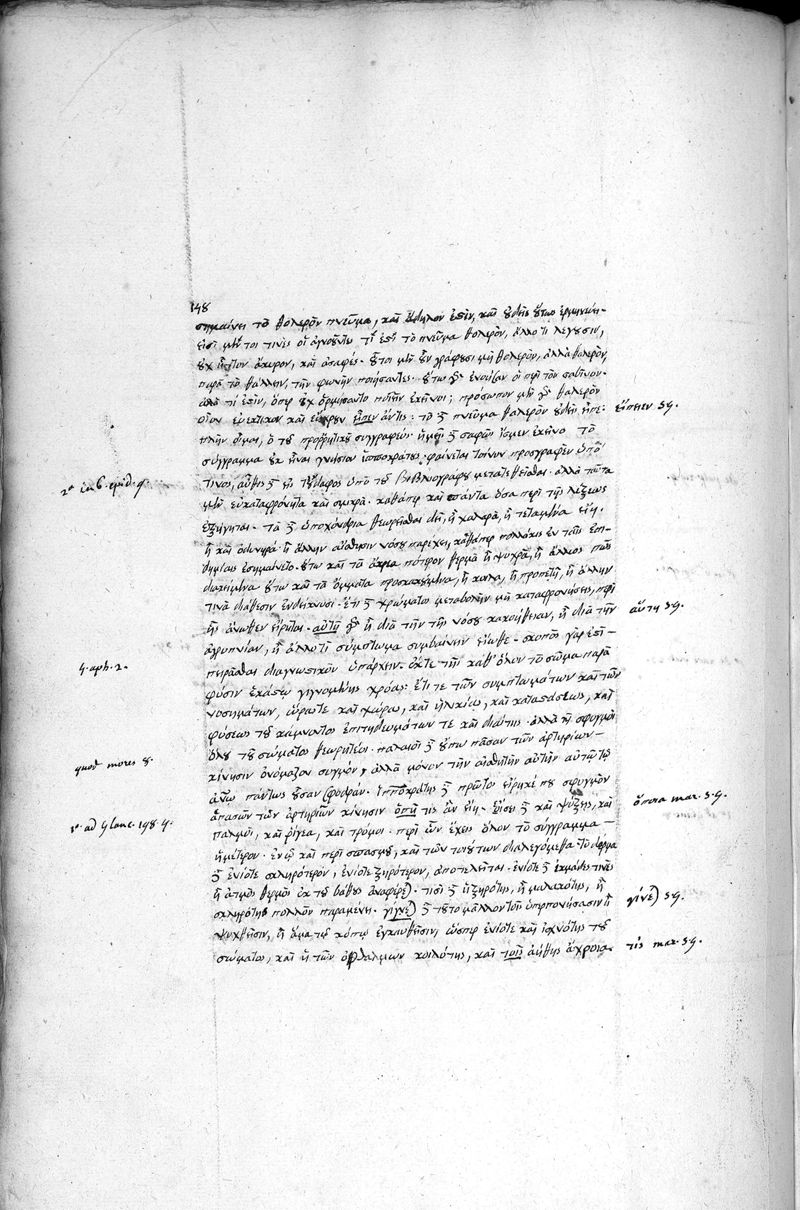 148
σημαίνει τὸ θολερὸν πνεῦμα, καὶ ἄδηλον ἐστὶν, καὶ οὐδεὶς οὕτω
εἰσὶ μέν τοι τινὲς οἳ ἀγνοοῦντες τί ἐστὶ τὸ πνεῦμα θολερὸν, ἄλλο τι λέγουσιν,
οὐχ ἧττον ἄκυρον, καὶ ἀσαφές. οὗτοι μὲν οὖν γράφουσι μὴ θολερὸν, ἀλλὰ θαλερὸν,
παρὰ τὸ θάλλειν, τὴν φωνὴν ποιήσαντες. οὕτω γὰρ ἐνόμιζον οἱ περὶ τὸν σαβῖνον.
ἀλλὰ τί ἐστὶν, ὅπερ οὐχ ὁρμήσαντο ποιεῖν ἐκεῖνοι; πρόσωπον μὲν γὰρ θαλερὸν
οἷον εὐεκτικὸν καὶ εὔχρουν εἶπεν ἄν τις· τὸ δὲ πνεῦμα θαλερὸν οὐδεὶς εἶπε·
πλὴν οἶμαι, ὁ τοῦ προρρητικοῦ συγγραφεύς. ἡμεῖς δὲ σαφῶς ἴσμεν ἐκεῖνο τὸ
σύγγραμμα οὐκ εἶναι γνήσιον ἱπποκράτους. φαίνεται τοίνυν προσγραφὲν ὑπό
τινος, αὖθις δὲ εἰς τὸ ἔδαφος ὑπὸ τοῦ βιβλιογράφου μετατεθεῖσθαι. ἀλλὰ ταῦτα
μὲν εὐκαταφρόνητα καὶ σμικρά. καθάπερ καὶ πάντα ὅσα περὶ τῆς λέξεως
ἐξηγῆται. τὰ δὲ ὑποχόνδρια θεωρεῖσθαι δεῖ, εἰ χαλαρὰ, ἢ τεταμένα εἴη.
ἢ καὶ ὀδυνηρά· ἢ ἄλλην αἴσθησιν νόσου παρέχει, καθάπερ πολλάκις ἐν ταῖς ἐπι-
δημίαις ἐσημαίνετο. οὕτω καὶ τὰ ἄκρεα πότερον θερμὰ ἢ ψυχρὰ, ἢ ἄλλως πως
διακείμενα· οὕτω καὶ τὰ ὄμματα, ἢ κοῖλα, ἢ προπετῆ, ἢ ἄλλην
τινὰ διάθεσιν ἐνδείκνυσι. ἔτι δὲ χρώματος μεταβολὴν μὴ καταφρονήσεις, περὶ
ἧς ἄνωθεν εἴρηται. αὐτὴ γὰρ ἢ διὰ τὴν τῆς νόσου κακοήθειαν, ἢ διὰ τὴν
ἀγρυπνίαν, ἢ ἄλλό τι σύμπτωμα συμβαίνειν εἴωθε. σκοπὸς γὰρ ἐστὶ
πειρᾶσθαι διαγνωστικὸν ὑπάρχειν. ἔκ τε τῆς καθ’ ὅλον τὸ σῶμα παρὰ
φύσιν ἑκάστῳ γιγνομένης χρόας· ἔτι τε τῶν συμπτωμάτων καὶ τῶν
νοσημάτων, ὥρας τε καὶ χώρας, καὶ ἡλικίας, καὶ καταστάσεως, καὶ
φύσεως τοῦ κάμνοντος ἐπιτηδευμάτων τε καὶ διαίτης. ἀλλὰ καὶ σφυγμοὶ
ὅλου τοῦ σώματος θεωρητέοι. παλαιοὶ δὲ οὔπω πᾶσαν τῶν ἀρτηριῶν
κίνησιν ὀνόμαζον σφυγμὸν, ἀλλὰ μόνον τὴν αἰσθητὴν αὐτὴν αὐτῷ τῷ
ἀνθρώπῳ πάντως οὖσαν σφοδράν. ἱπποκράτης δὲ πρῶτος εἴρηκέ που σφυγμὸν
ἁπασῶν τῶν ἀρτηριῶν κίνησιν ὅπη τις ἂν εἴη. εἴσει δὲ καὶ ψύξεις, καὶ
παλμοὶ, καὶ ῥίγεα, καὶ τρόμοι. περὶ ὧν ἔχεις ὅλον τὸ σύγγραμμα
ἡμέτερον. ἐν ᾧ καὶ περὶ σπασμοῦ, καὶ τῶν τοιούτων διαλεγόμεθα. τὸ δέρμα
δὲ ἐνίοτε σκληρότερον, ἐνίοτε ξηρότερον, ἀποτελεῖται. ἐνίοτε δὲ ἰκμάδες τινὲς
ἢ ἀτμοὶ θερμοὶ ἐκ τοῦ βάθους ἀναφέρεται. τισὶ δὲ ἡ ξηρότης, ἢ μαλακότης, ἢ
σκληρότης πολλῶν παραμένει. γίγνεται δὲ τοῦτο μᾶλλον τοῖς ὑπερπονήσασιν ἢ
ψυχθεῖσιν, ἢ ἅμα τῷ κόπῳ ἐγκαυθεῖσιν, ὥσπερ ἐνίοτε καὶ ἰσχνότης τοῦ
σώματος, καὶ ἡ τῶν ὀφθαλμῶν κοιλότης, καὶ τοῖς αὖθις ἄχροια
εἴποιεν 59.
2° in 6. epid. 9.
αὕτη 59.
4. aph. 2.
quod mores 8.
ὅποια mar. 59.
1° ad Glauc. 198 4.
γίνεται 59.
τὶς mar. 59.